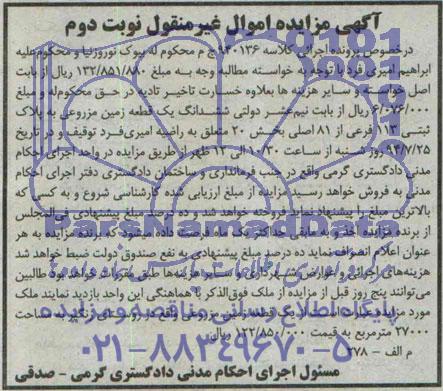 آگهی مزایده اموال غیرمنقول نوبت دوم
درخصوص پرونده اجرائی کلاسه ۹۴۰۱۳۶ ج م محکوم له بیوک نوروزنیا و محکوم علیه
ابراهیم امیری فرد با توجه به خواسته مطالبه وجه به مبلغ ۱۳۲/۸۵۱/۸۸۰ ریال از بابت
اصل خواسته و سایر هزینه ها بعلاوه خسارت تاخیر تادیه در حق محکوم له و مبلغ
۶/۰۷۶/۰۰۰ ریال از بابت نیم عشر دولتی ششدانگ یک قطعه زمین مزروعی به پلاک
ثبتی ۱۱۳ فرعی از ۸۱ اصلی بخش ۲۰ متعلق به راضیه امیری فرد توقیف و در تاریخ
۹۴/۷/۲۵ روز شنبه از ساعت ۱۰/۳۰ الی ۱۲ ظهر از طریق مزایده در واحد اجرای احکام
مدنی دادگستری گرمی واقع در جنب فرمانداری و ساختمان دادگستری دفتر اجرای احکام
مدنی به فروش خواهد رسید مزایده از مبلغ ارزیابی شده کارشناسی شروع و به کسی که
بالاترین مبلغ را پیشنهاد نماید فروخته خواهد شد و ده درصد مبلغ پیشنهادی فی المجلس
از برنده مزایده اخذ و مابقی حداکثر یک ماه فرصت داده میشود که برنده مزایده به هر
عنوان اعلام انصراف نماید ده درصد مبلغ پیشنهادی به نفع صندوق دولت ضبط خواهد شد
هزینه های اجرائی و عوارض شهرداری و سایر هزینه ها طبق مقررات خواهد بود طالبین
می توانند پنج روز قبل از مزایده از ملک فوق الذکر با هماهنگی این واحد بازدید نمایند ملک
مورد مزایده عبارت است از یک قطعه زمین مزروعی واقع در روستای به مساحت
۲۷۰۰۰ مترمربع به قیمت ۱۲۲/۸۵۰/۰۰۰ ریال
م الف - ۲۷۸
مسئول اجرای احکام مدنی دادگستری گرمی - صدقی
ParsNamadData
پایگاه اطلاع رسانی مناقصه و مزایده
۰۲۱-۸۸۳۴۹۶۷۰-۵